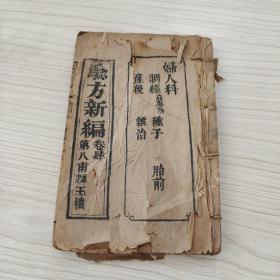 婦人科
調經 種子 胎前
產後 雜治
驗方新編 卷肆
第八甫 玉樓